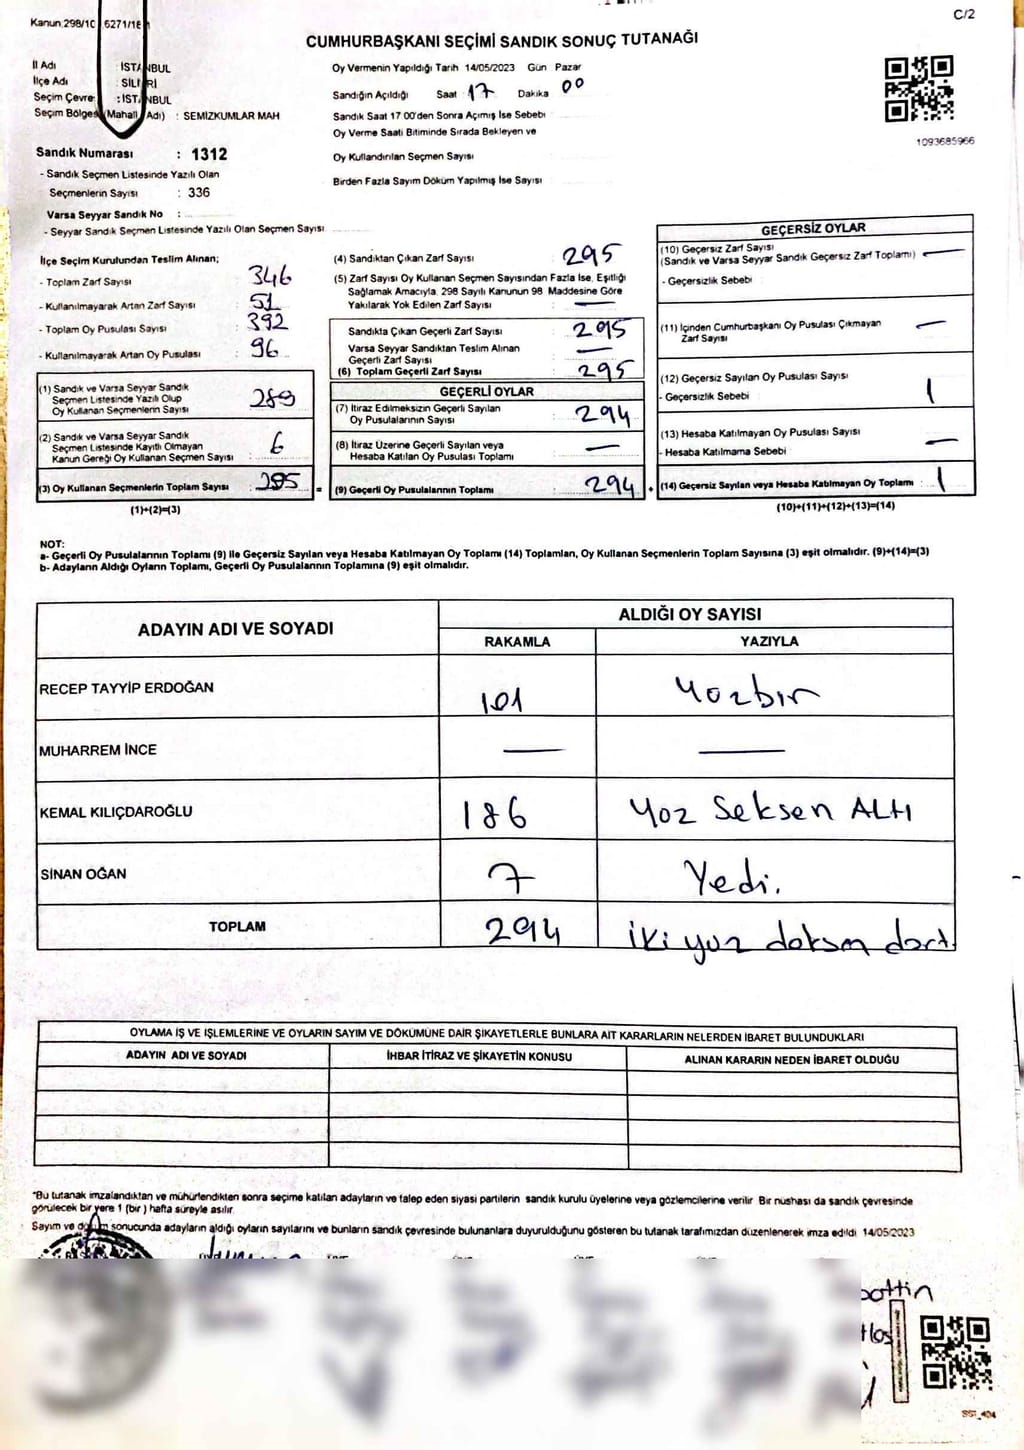 C/2
Kanun.298/10 6271/18
CUMHURBAŞKANI SEÇİMİ SANDIK SONUÇ TUTANAĞI
İl Adı : İSTANBUL
İlçe Adı : SİLİVRİ
Seçim Çevre : İSTANBUL
Seçim Bölges (Mahall Adı) : SEMİZKUMLAR MAH
Oy Vermenin Yapıldığı Tarih 14/05/2023 Gün Pazar
Sandığın Açıldığı Saat 17 Dakika 00
Sandık Saat 17 00'den Sonra Açımış İse Sebebi
Oy Verme Saati Bitiminde Sırada Bekleyen ve
Oy Kullandırılan Seçmen Sayısı
Birden Fazla Sayım Döküm Yapılmış İse Sayısı
1093685966
Sandık Numarası : 1312
- Sandık Seçmen Listesinde Yazılı Olan
Seçmenlerin Sayısı : 336
Varsa Seyyar Sandık No :
- Seyyar Sandık Seçmen Listesinde Yazılı Olan Seçmen Sayısı
İlçe Seçim Kurulundan Teslim Alınan;
- Toplam Zarf Sayısı : 346
- Kullanılmayarak Artan Zarf Sayısı : 51
- Toplam Oy Pusulası Sayısı : 392
- Kullanılmayarak Artan Oy Pusulası : 96
(1) Sandık ve Varsa Seyyar Sandık
Seçmen Listesinde Yazılı Olup
Oy Kullanan Seçmenlerin Sayısı : 289
(2) Sandık ve Varsa Seyyar Sandık
Seçmen Listesinde Kayıtlı Olmayan
Kanun Gereği Oy Kullanan Seçmen Sayısı : 6
(3) Oy Kullanan Seçmenlerin Toplam Sayısı : 295 =
(1)+(2)=(3)
(4) Sandıktan Çıkan Zarf Sayısı : 295
(5) Zarf Sayısı Oy Kullanan Seçmen Sayısından Fazla İse, Eşitliği
Sağlamak Amacıyla, 298 Sayılı Kanunun 98. Maddesine Göre
Yakılarak Yok Edilen Zarf Sayısı : —
Sandıkta Çıkan Geçerli Zarf Sayısı : 295
Varsa Seyyar Sandıktan Teslim Alınan
Geçerli Zarf Sayısı : —
(6) Toplam Geçerli Zarf Sayısı : 295
GEÇERLİ OYLAR
(7) İtiraz Edilmeksizin Geçerli Sayılan
Oy Pusulalarının Sayısı : 294
(8) İtiraz Üzerine Geçerli Sayılan veya
Hesaba Katılan Oy Pusulası Toplamı : —
(9) Geçerli Oy Pusulalarının Toplamı : 294 +
GEÇERSİZ OYLAR
(10) Geçersiz Zarf Sayısı
(Sandık ve Varsa Seyyar Sandık Geçersiz Zarf Toplamı) : —
- Geçersizlik Sebebi
(11) İçinden Cumhurbaşkanı Oy Pusulası Çıkmayan
Zarf Sayısı : —
(12) Geçersiz Sayılan Oy Pusulası Sayısı : 1
- Geçersizlik Sebebi
(13) Hesaba Katılmayan Oy Pusulası Sayısı : —
- Hesaba Katılmama Sebebi
(14) Geçersiz Sayılan veya Hesaba Katılmayan Oy Toplamı : 1
(10)+(11)+(12)+(13)=(14)
NOT:
a- Geçerli Oy Pusulalarının Toplamı (9) ile Geçersiz Sayılan veya Hesaba Katılmayan Oy Toplamı (14) Toplamları, Oy Kullanan Seçmenlerin Toplam Sayısına (3) eşit olmalıdır. (9)+(14)=(3)
b- Adayların Aldığı Oyların Toplamı, Geçerli Oy Pusulalarının Toplamına (9) eşit olmalıdır.
ADAYIN ADI VE SOYADI ALDIĞI OY SAYISI
RAKAMLA YAZIYLA
RECEP TAYYİP ERDOĞAN 101 Yozbir
MUHARREM İNCE — —
KEMAL KILIÇDAROĞLU 186 Yoz Seksen ALTI
SİNAN OĞAN 7 Yedi.
TOPLAM 294 iki yuz doksan dort
OYLAMA İŞ VE İŞLEMLERİNE VE OYLARIN SAYIM VE DÖKÜMÜNE DAİR ŞİKAYETLERLE BUNLARA AİT KARARLARIN NELERDEN İBARET BULUNDUKLARI
ADAYIN ADI VE SOYADI İHBAR İTİRAZ VE ŞİKAYETİN KONUSU ALINAN KARARIN NEDEN İBARET OLDUĞU
*Bu tutanak imzalandıktan ve mühürlendikten sonra seçime katılan adayların ve talep eden siyasi partilerin sandık kurulu üyelerine veya gözlemcilerine verilir. Bir nüshası da sandık çevresinde
görülecek bir yere 1 (bir ) hafta süreyle asılır.
Sayım ve sonucunda adayların aldığı oyların sayılarını ve bunların sandık çevresinde bulunanlara duyurulduğunu gösteren bu tutanak tarafımızdan düzenlenerek imza edildi. 14/05/2023